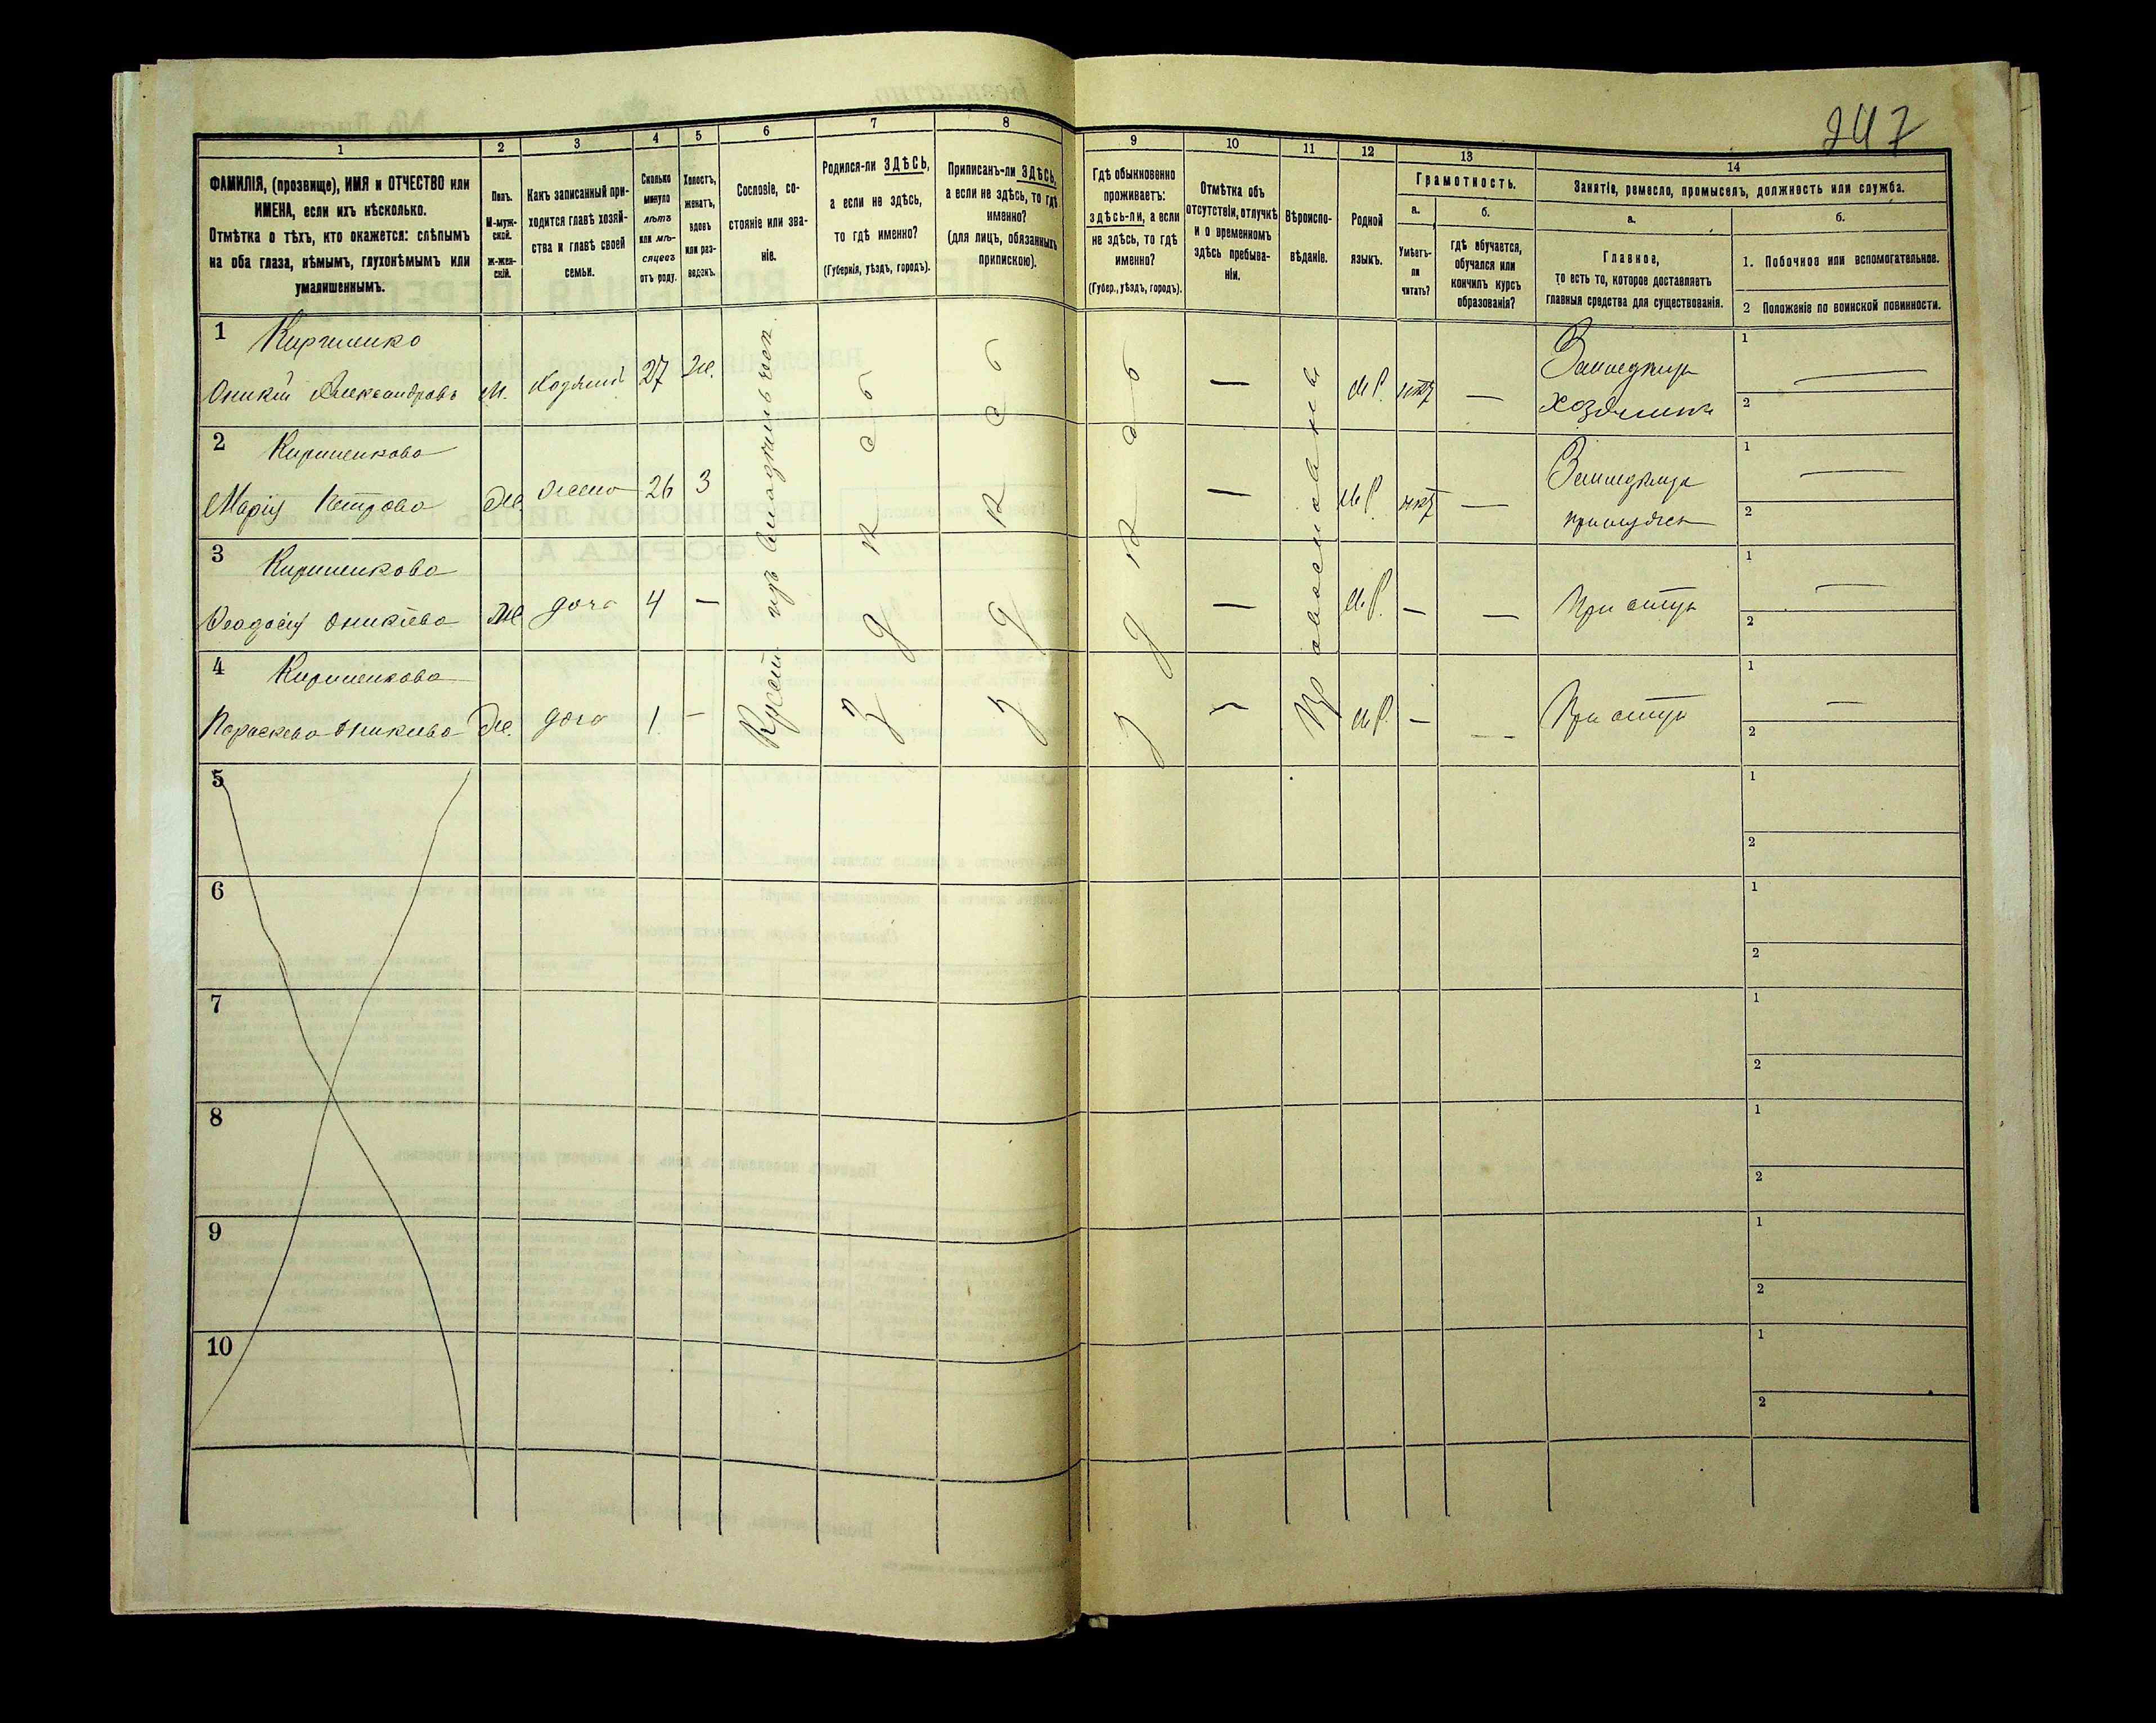 247
1
2
3
4
5
6
7
8
9
10
11
12
13
14
ФАМИЛІЯ, (прозвище), ИМЯ и ОТЧЕСТВО или
ИМЕНА, если ихъ нѣсколько.
Отмѣтка о тѣхъ, кто окажется: слѣпымъ
на оба глаза, нѣмымъ, глухонѣмымъ или
умалишеннымъ.
Полъ.
М-муж-
ской.
ж-жен-
скій.
Какъ записанный при-
ходится главѣ хозяй-
ства и главѣ своей
семьи.
Сколько
минуло
лѣтъ
или мѣ-
сяцевъ
отъ роду.
Холостъ,
женатъ,
вдовъ
или раз-
веденъ.
Сословіе, со-
стояніе или зва-
ніе.
Родился-ли ЗДѢСЬ,
а если не здѣсь,
то гдѣ именно?
(Губернія, уѣздъ, городъ).
Приписанъ-ли ЗДѢСЬ,
а если не здѣсь, то гдѣ
именно?
(для лицъ, обязанныхъ
припискою).
Гдѣ обыкновенно
проживаетъ:
здѣсь-ли, а если
не здѣсь, то гдѣ
именно?
(Губер., уѣздъ, городъ).
Отмѣтка объ
отсутствіи, отлучкѣ
и о временномъ
здѣсь пребыва-
ніи.
Вѣроиспо-
вѣданіе.
Родной
языкъ.
Грамотность.
а.
б.
Умѣетъ-
ли
читать?
гдѣ обучается,
обучался или
кончилъ курсъ
образованія?
Занятіе, ремесло, промыселъ, должность или служба.
а.
б.
Главное,
то есть то, которое доставляетъ
главныя средства для существованія.
1. Побочное или вспомогательное.
2 Положеніе по воинской повинности.
1 Кириенко
Оникій Александровъ М. хозяинъ 27 Ж. — М.Р. нѣтъ —
Земледѣлецъ
хозяинъ
1
2
2 Кириенкова
Марія Петрова Ж. жена 26 З — М.Р. нѣтъ —
Земледѣлецъ
1
2
3 Кириенкова
Феодосія Оникіева Ж. дочь 4 — — М.Р. — — При отцѣ
1
2
4 Кириенкова
Параскева Оникіева Ж. дочь 1 — — М.Р. — — При отцѣ
1
2
Крест. изъ владѣльчес.
здѣсь
здѣсь
здѣсь
Православное
5
1
2
6
1
2
7
1
2
8
1
2
9
1
2
10
1
2